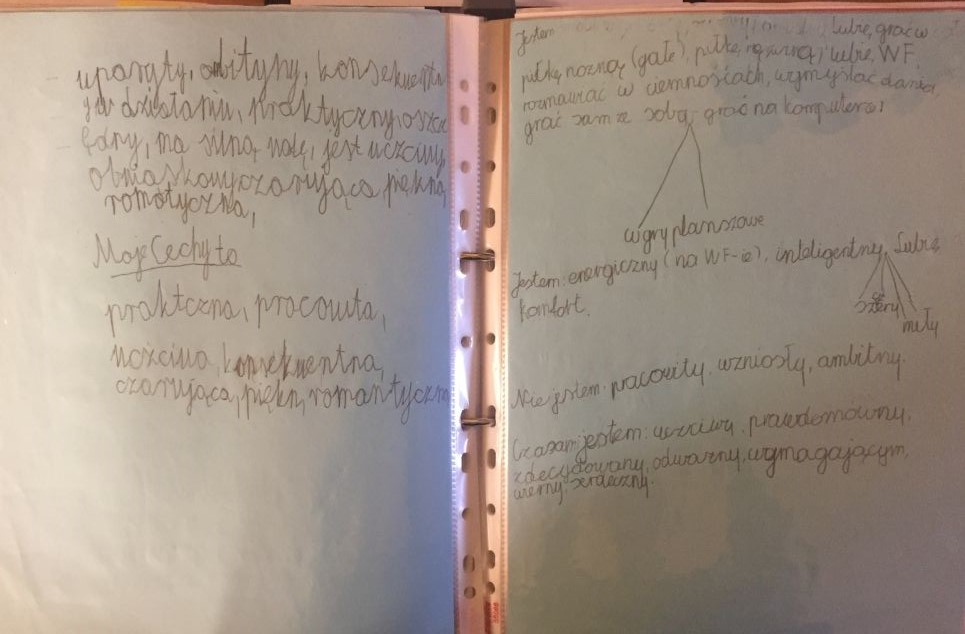 uparyty, ambityny, konsekwentn
y w działaniu, praktyczny, oszcz
ędny, ma silną wolę, jest uczciwy,
obowiąskowy, czarująca, piękna,
romotyczna,
Moje Cechy to
praktczna, pracowita,
uczciwa, konsekwentna,
czarująca, piękn, romantyczna
Jestem lubię grać w
piłkę nożną (gałe), piłkę ręczną, lubię WF,
rozmawiać w ciemnościach, wymyślać dania,
grać sam ze sobą, grać na komputerze!
w gry planszowe
Jestem: energiczny (na WF-ie), inteligentny, Lubię
komfort, szczery
miły
Nie jestem: pracowity, wzniosły, ambitny.
Czasami jestem: uczciwy, prawdomówny,
zdecydowany, odważny, wymagającym,
wierny, serdeczny.